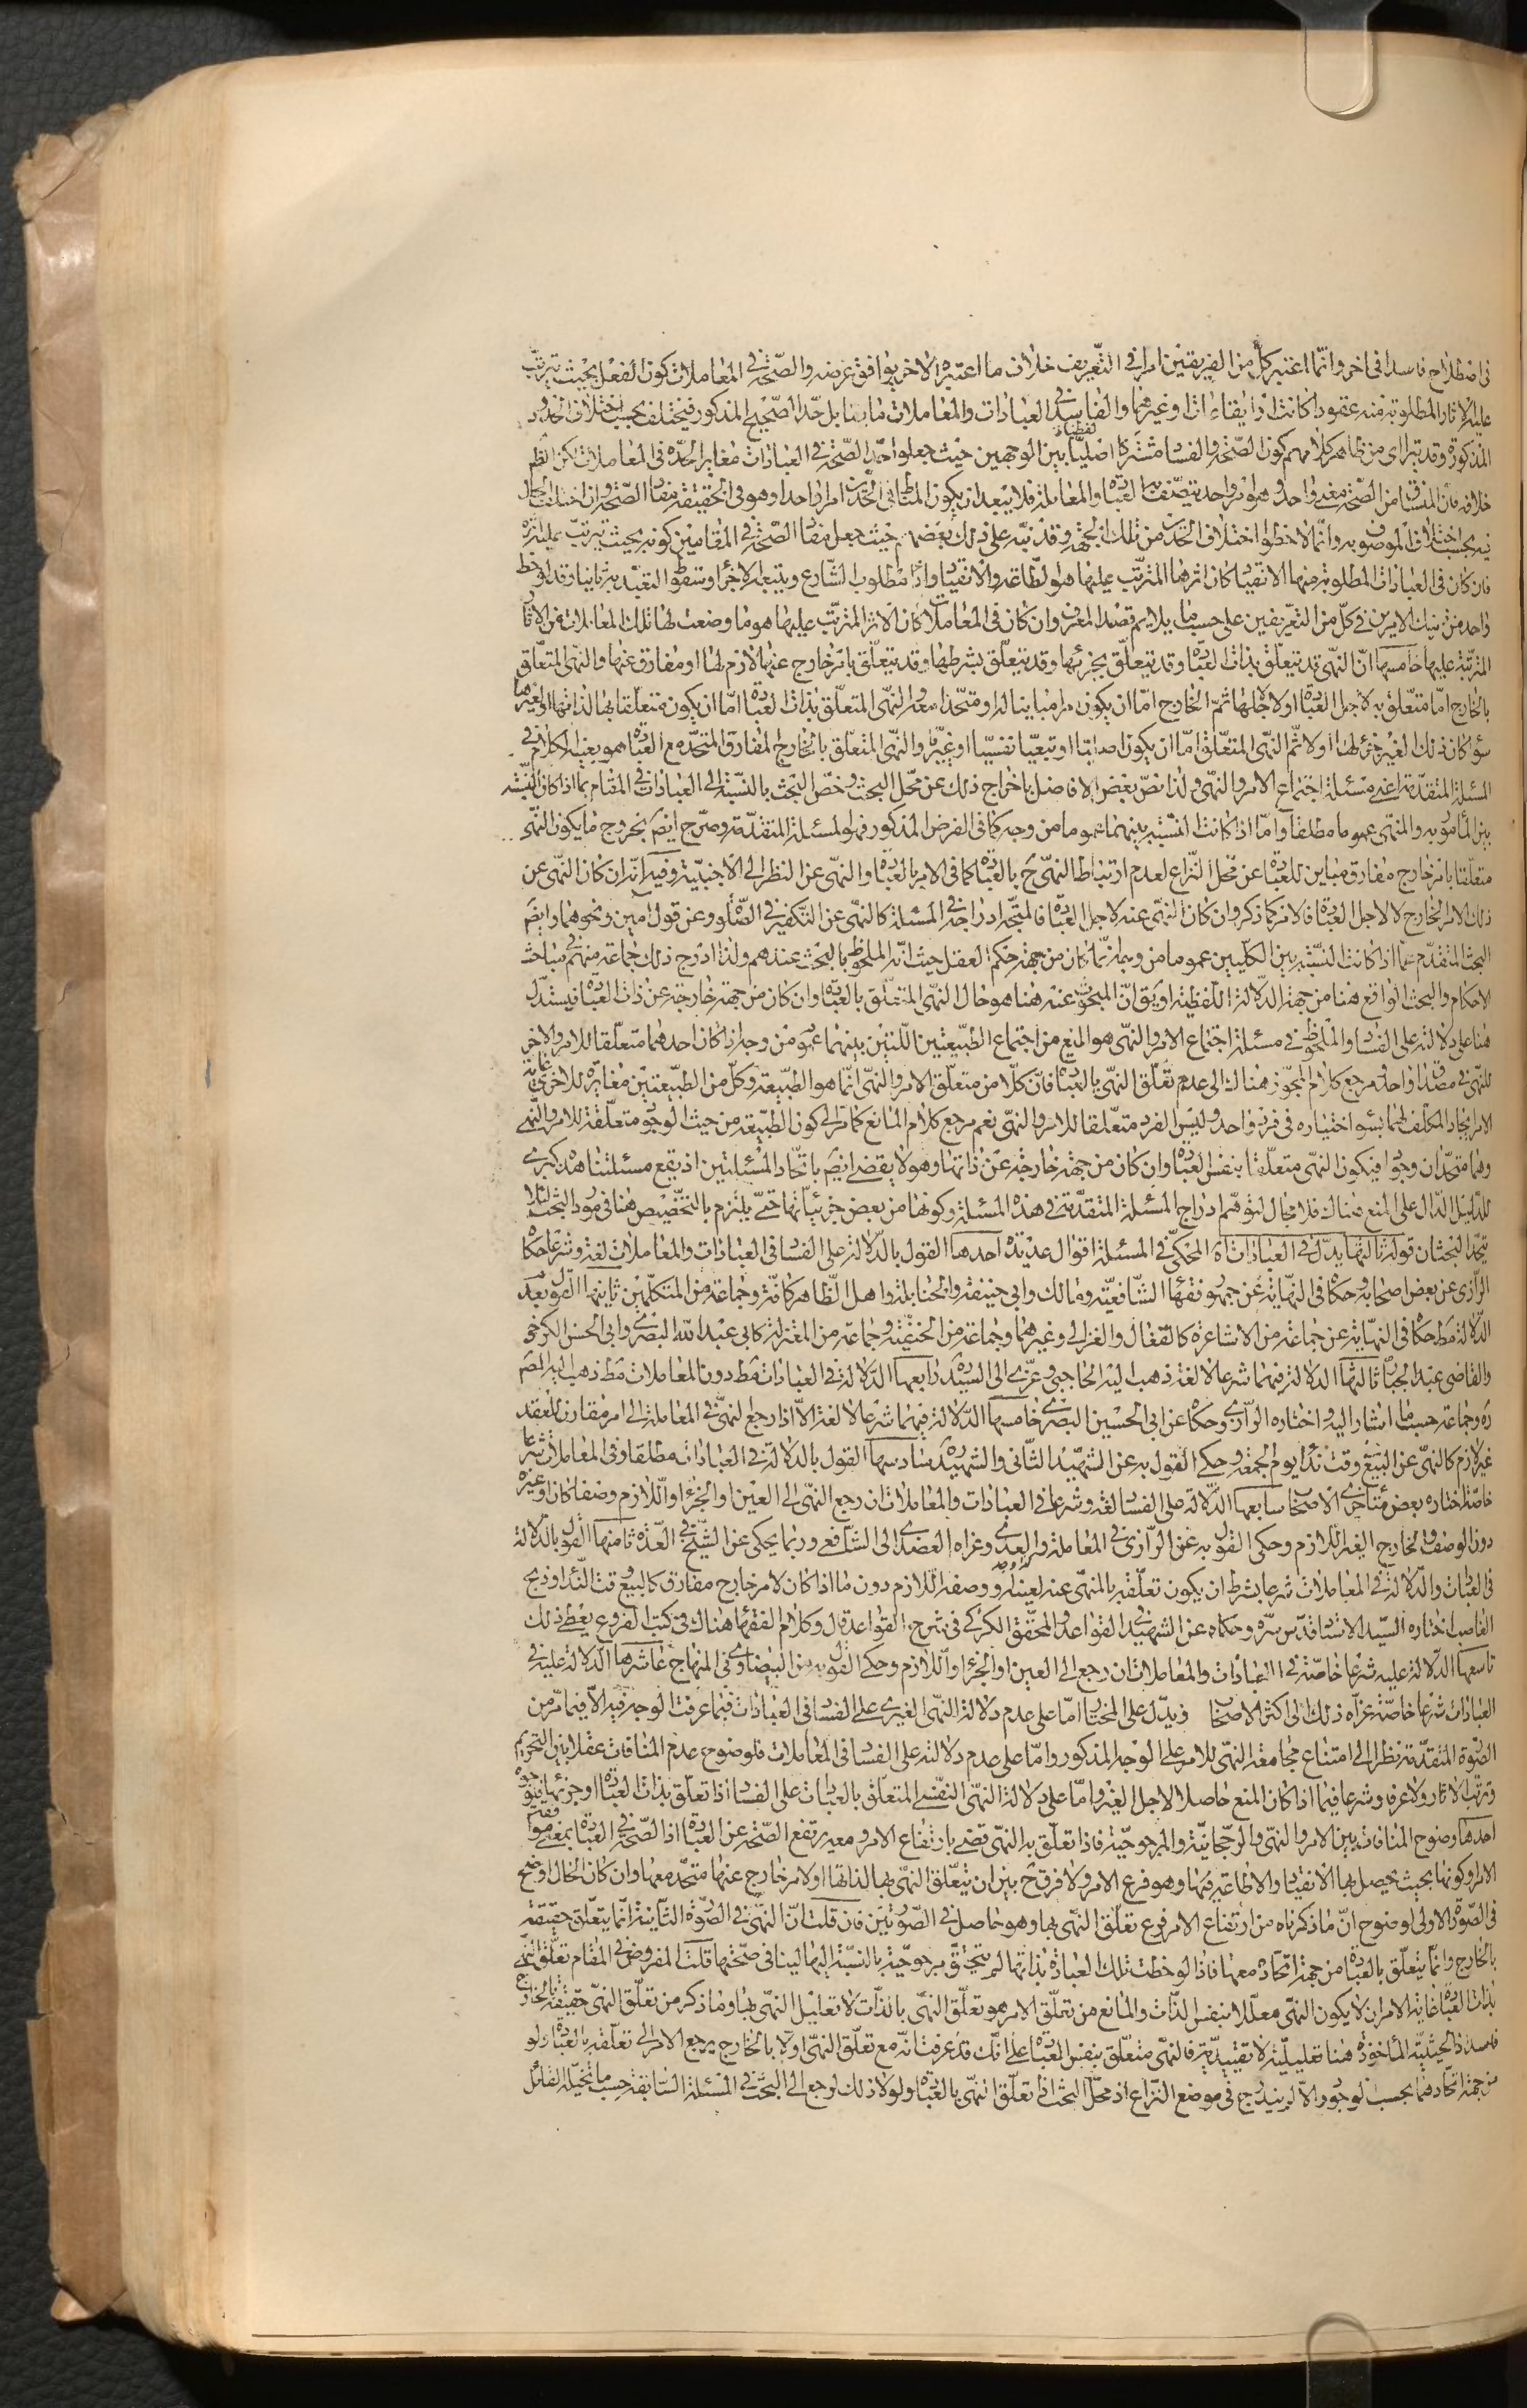 فى اصطلاح فاسدا فى اخر وانّما اعتبر كلّ من الفريقين امرا فى التّعريف خلاف ما اعتبره الاخر يوافق غرضه والصّحة فى المعاملات كون الفعل بحيث يترتّب
عليه الاثار المطلوبة منه عقودا كانت او ايقاعات او غيرهما والفاسد فى العبادات والمعاملات ما يقابل حدّ الصّحيح المذكور فيختلف بحسب اختلاف الحدود
المذكورة وقد يتراءى من ظاهر كلامهم كون الصّحة والفساد مشتركا لفظيّا بين الوجهين حيث جعلوا حدّ الصّحة فى العبادات مغايرا لحدّه فى المعاملات لكن الظّ
خلافه فانّ المنساق من الصّحة معنى واحد وهو امر واحد يتّصف به العبادة والمعاملة فلا يبعد ان يكون الملحوظ فى الحدّين امرا واحدا وهو فى الحقيقة مفاد الصّحة وان اختلف الحال
فيه بحسب اختلاف الموصوف به وانّما لاحظوا اختلاف الحدّين من تلك الجهة وقد نبّه على ذلك بعضهم حيث جعل مفاد الصّحة فى المقامين كونه بحيث يترتّب عليه اثره
فان كان فى العبادات المطلوبة منها الانقياد كان اثرها المترتّب عليها هو الطّاعة والانقياد واداء مطلوب الشّارع ويتبعه الاجزاء وسقوط التعبّد به ثانيا وقد لوحظ
واحد من تينك الامرين فى كلّ من التّعريفين على حسب ما يلايم قصد المعرف وان كان فى المعاملات كان الاثر المترتّب عليها هو ما وضعت لها تلك المعاملات من الاثار
المترتّبة عليها خامسها انّ النّهى قد يتعلّق بذات العبادة وقد يتعلّق بجزئها وقد يتعلّق بشرطها وقد يتعلّق بامر خارج عنها لازم لها او مفارق عنها والنّهى المتعلّق
بالخارج امّا متعلّق به لاجل العبادة او لا لاجلها ثمّ الخارج امّا ان يكون امرا مباينا له او متّحدا معه والنّهى المتعلّق بذات العبادة امّا ان يكون متعلّقا بها لذاتها او لغيرها
سواء كان ذلك الغير جزئا لها او لا ثمّ النّهى المتعلّق امّا ان يكون اصليّا او تبعيّا نفسيّا او غيريّا والنّهى المتعلّق بالخارج المفارق المتّحد مع العبادة هو بعينه الكلام فى
المسئلة المتقدّمة اعنى مسئلة اجتماع الامر والنّهى ولذا نصّ بعض الافاضل باخراج ذلك عن محلّ البحث وخصّ البحث بالنّسبة الى العبادات فى المقام بما اذا كان النّسبة
بين المأمور به والمنهى عموما مطلقا وامّا اذا كانت النّسبة بينهما عموما من وجه كما فى الفرض المذكور فهو المسئلة المتقدّمة وصرّح ايضَ بخروج ما يكون النّهى
متعلّقا بامر خارج مفارق مباين للعبادة عن محلّ النّزاع لعدم ارتباط النّهى ح بالعبادة كما فى الامر بالعبادة والنّهى عن النظر الى الاجنبيّة وفيه انّه ان كان النّهى عن
ذلك الامر الخارج لا لاجل العبادة فالامر كما ذكر وان كان النّهى عنه لاجل العبادة فالمتّجه ادراجه فى المسئلة كالنّهى عن التّكفير فى الصّلوة وعن قول امين ونحوهما وايضَ
البحث المتقدّم عمّا اذا كانت النّسبة بين الكليّين عموما من وجه انّما كان من جهة حكم العقل حيث انّه الملحوظ بالبحث عندهم ولذا ادرج ذلك جماعة منهم فى مباحث
الاحكام والبحث الواقع هنا من جهة الدّلالة اللّفظيّة او يق انّ المبحوث عنه هنا هو حال النّهى المتعلّق بالعبادة وان كان من جهة خارجة عن ذات العبادة فيستدلّ
هنا على دلالته على الفساد والملحوظ فى مسئلة اجتماع الامر والنّهى هو المنع من اجتماع الطّبيعتين اللّتين بينهما عموم من وجه اذا كان احدهما متعلّقا للامر والاخرى
للنّهى فى مصداق واحد ومرجع كلام المجوّز هناك الى عدم تعلّق النّهى بالعبادة فانّ كلّا من متعلّق الامر والنّهى انّما هو الطّبيعة وكلّ من الطّبيعتين مغايرة للاخرى غاية
الامر ايجاد المكلّف لهما بسوء اختياره فى فرد واحد وليس الفرد متعلّقا للامر والنّهى نعم مرجع كلام المانع كما ترى الى كون الطّبيعة من حيث الوجود متعلّقة للامر والنّهى
وهما متّحدان وجودا فيكون النّهى متعلّقا بنفس العبادة وان كان من جهة خارجة عن ذاتها وهو لا يقضى ايضَ باتّحاد المسئلتين اذ يقع مسئلتنا هذه كبرى
للدّليل الدّال على المنع هناك فلا مجال لتوهّم ادراج المسئلة المتقدّمة فى هذه المسئلة وكونها من بعض جزئيّاتها حتّى يلتزم بالتّخصيص هنا فى مورد البحث لئلّا
يتّحد البحثان قوله ثالثها يدلّ فى العبادات اه المحكىّ فى المسئلة اقوال عديدة احدها القول بالدّلالة على الفساد فى العبادات والمعاملات لغة وشرعا حكاه
الرّازى عن بعض اصحابه وحكاه فى النّهاية عن جمهور فقهاء الشّافعيّة ومالك وابى حنيفة والحنابلة واهل الظّاهر كافّة وجماعة من المتكلّمين ثانيها القول بعدم
الدّلالة مط حكاه فى النّهاية عن جماعة من الاشاعرة كالقفال والغزالى وغيرهما وجماعة من الحنفيّة وجماعة من المعتزلة كابى عبد اللّه البصرى وابى الحسن الكرخى
والقاضى عبد الجبّار ثالثها الدلالة فيهما شرعا لا لغة ذهب اليه الحاجبى وعزى الى السيّد ره رابعها الدّلالة فى العبادات مط دون المعاملات مط ذهب اليه المصَ
ره وجماعة حسب ما اشار اليه واختاره الرّازى وحكاه عن ابى الحسين البصرى خامسها الدّلالة فيهما شرعا لا لغة الّا اذا رجع النّهى فى المعاملة الى امر مقارن للعقد
غير لازم كالنّهى عن البيع وقت نداء يوم الجمعة وحكى القول به عن الشّهيد الثّانى والشّهيد سادسها القول بالدلالة فى العبادات مطلقا وفى المعاملات شرعا
خاصّة اختاره بعض متأخّرى الاصحاب سابعها الدّلالة على الفساد لغة وشرعا فى العبادات والمعاملات ان رجع النّهى الى العين او الجزء او اللّازم وصفا كان او غيره
دون الوصف والخارج الغير اللّازم وحكى القول به عن الرّازى فى المعاملة وعزاه العضدى الى الشّافعى وربّما يحكى عن الشّيخ فى العدّة ثامنها القول بالدّلالة
فى العبادات والدّلالة فى المعاملات شرعا بشرط ان يكون تعلّقه بالمنهى عنه لعينه او وصفه اللّازم دون ما اذا كان لامر خارج مفارق كالبيع وقت النّداء وذبح
الغاصب اختاره السيّد الاستاد قدّس سرّه وحكاه عن الشهيد فى القواعد والمحقّق الكركى فى شرح القواعد قال وكلام الفقهاء هناك فى كتب الفروع يعطى ذلك
تاسعها الدّلالة عليه شرعا خاصّة فى العبادات والمعاملات ان رجع الى العين او الجزء او اللّازم وحكى القول به عن البيضاوى فى المنهاج عاشرها الدّلالة عليه فى
العبادات شرعا خاصّة عزاه ذلك الى اكثر الاصحاب ويدلّ على المختار امّا على عدم دلالة النّهى الغيرى على الفساد فى العبادات فبما عرفت الوجه فيه الّا فيما مرّ من
الصّورة المتقدّمة نظرا الى امتناع مجامعة النّهى للامر على الوجه المذكور وامّا على عدم دلالته على الفساد فى المعاملات فلوضوح عدم المنافات عقلا بين التّحريم
وترتّب الاثار ولا عرفا وشرعا فيما اذا كان المنع حاصلا لاجل الغير وامّا على دلالة النّهى النّفسى المتعلّق بالعبادات على الفساد اذا تعلّق بذات العبادة او جزئها فبوجوه
احدها وضوح المنافات بين الامر والنّهى والرّجحانيّة والمرجوحيّة فاذا تعلّق به النّهى قضى بارتفاع الامر ومعه يرتفع الصّحة عن العبادة اذ الصّحة فى العبادة بمعنى موافقة
الامر او كونها بحيث يحصل بها الانقياد والاطاعة فيها وهو فرع الامر ولا فرق ح بين ان يتعلّق النّهى بها لذاتها او لامر خارج عنها متّحد معها وان كان الحال اوضح
فى الصّورة الاولى لوضوح انّ ما ذكرناه من ارتفاع الامر فرع تعلّق النّهى بها وهو حاصل فى الصّورتين فان قلت انّ النّهى فى الصّورة الثّانية انّما يتعلّق حقيقة
بالخارج وانّما يتعلّق بالعبادة من جهة اتّحاده معها فاذا لوحظت تلك العبادة بذاتها لم يتحقّق مرجوحيّة بالنّسبة اليها لينافى صحّتها قلت المفروض فى المقام تعلّق النّهى
بذات العبادة غاية الامر ان لا يكون النّهى معلّلا بنفس الذّات والمانع من تعلّق الامر هو تعلّق النّهى بالذّات لا تعليل النّهى بها وما ذكر من تعلّق النّهى حقيقة بالخارج
فاسد اذ الحيثيّة المأخوذة هنا تعليليّة لا تقييديّة فالنّهى متعلّق بنفس العبادة على انّك قد عرفت انّه مع تعلّق النّهى اوّلا بالخارج يرجع الامر الى تعلّقه بالعبادة ولو
من جهة اتّحادهما بحسب الوجود والّا لم يندرج فى موضع النّزاع اذ محلّ البحث اذا تعلّق النّهى بالعبادة ولو لا ذلك لرجع الى البحث فى المسئلة السّابقة حسب ما تخيّله القائل